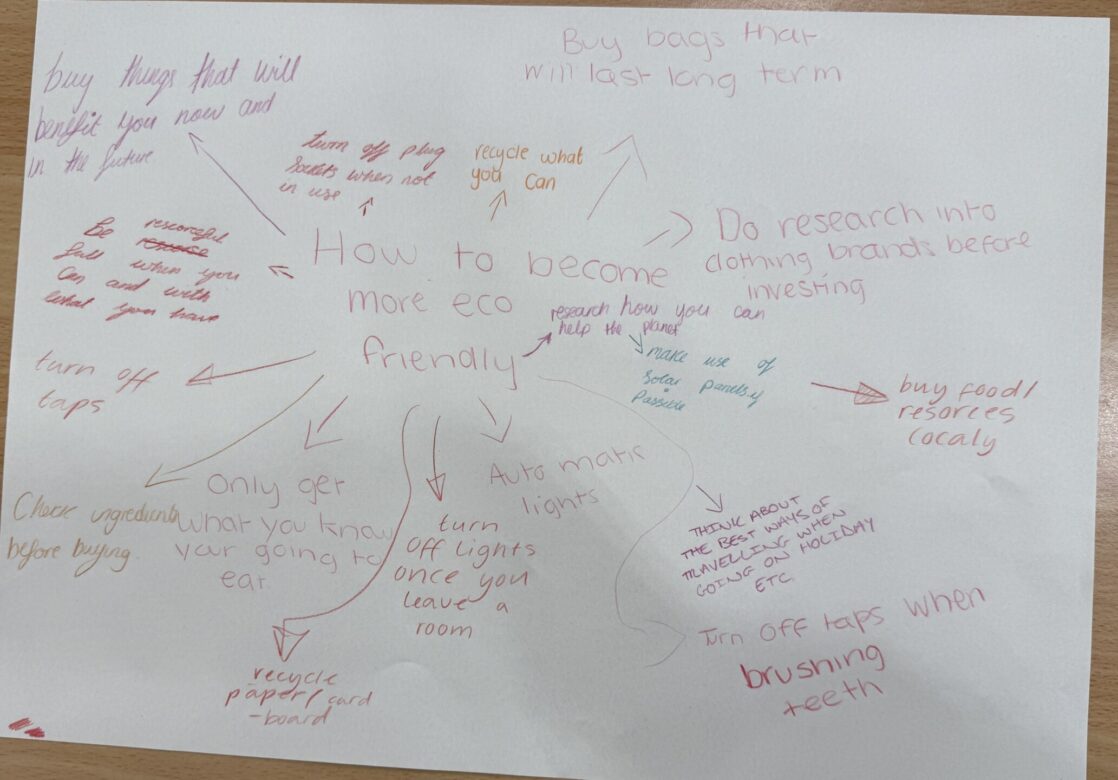 How to become
more eco
friendly
buy things that will
benefit you now and
in the future
turn off plug
sockets when not
in use
recycle what
you can
Buy bags that
will last long term
Do research into
clothing brands before
investing
research how you can
help the planet
make use of
Solar panels if
Possible
buy food/
resorces
localy
Be resorceful
full when you
Can and with
what you have
turn off
taps
Check ingredients
before buying.
Only get
what you know
your going to
eat
recycle
paper/card
-board
turn
off lights
once you
leave a
room
Automatic
lights
THINK ABOUT
THE BEST WAYS OF
TRAVELLING WHEN
GOING ON HOLIDAY
ETC
Turn off taps when
brushing
teeth